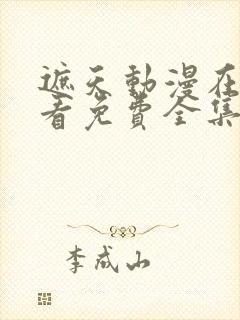 遮天動漫在
看免費全集
李成山